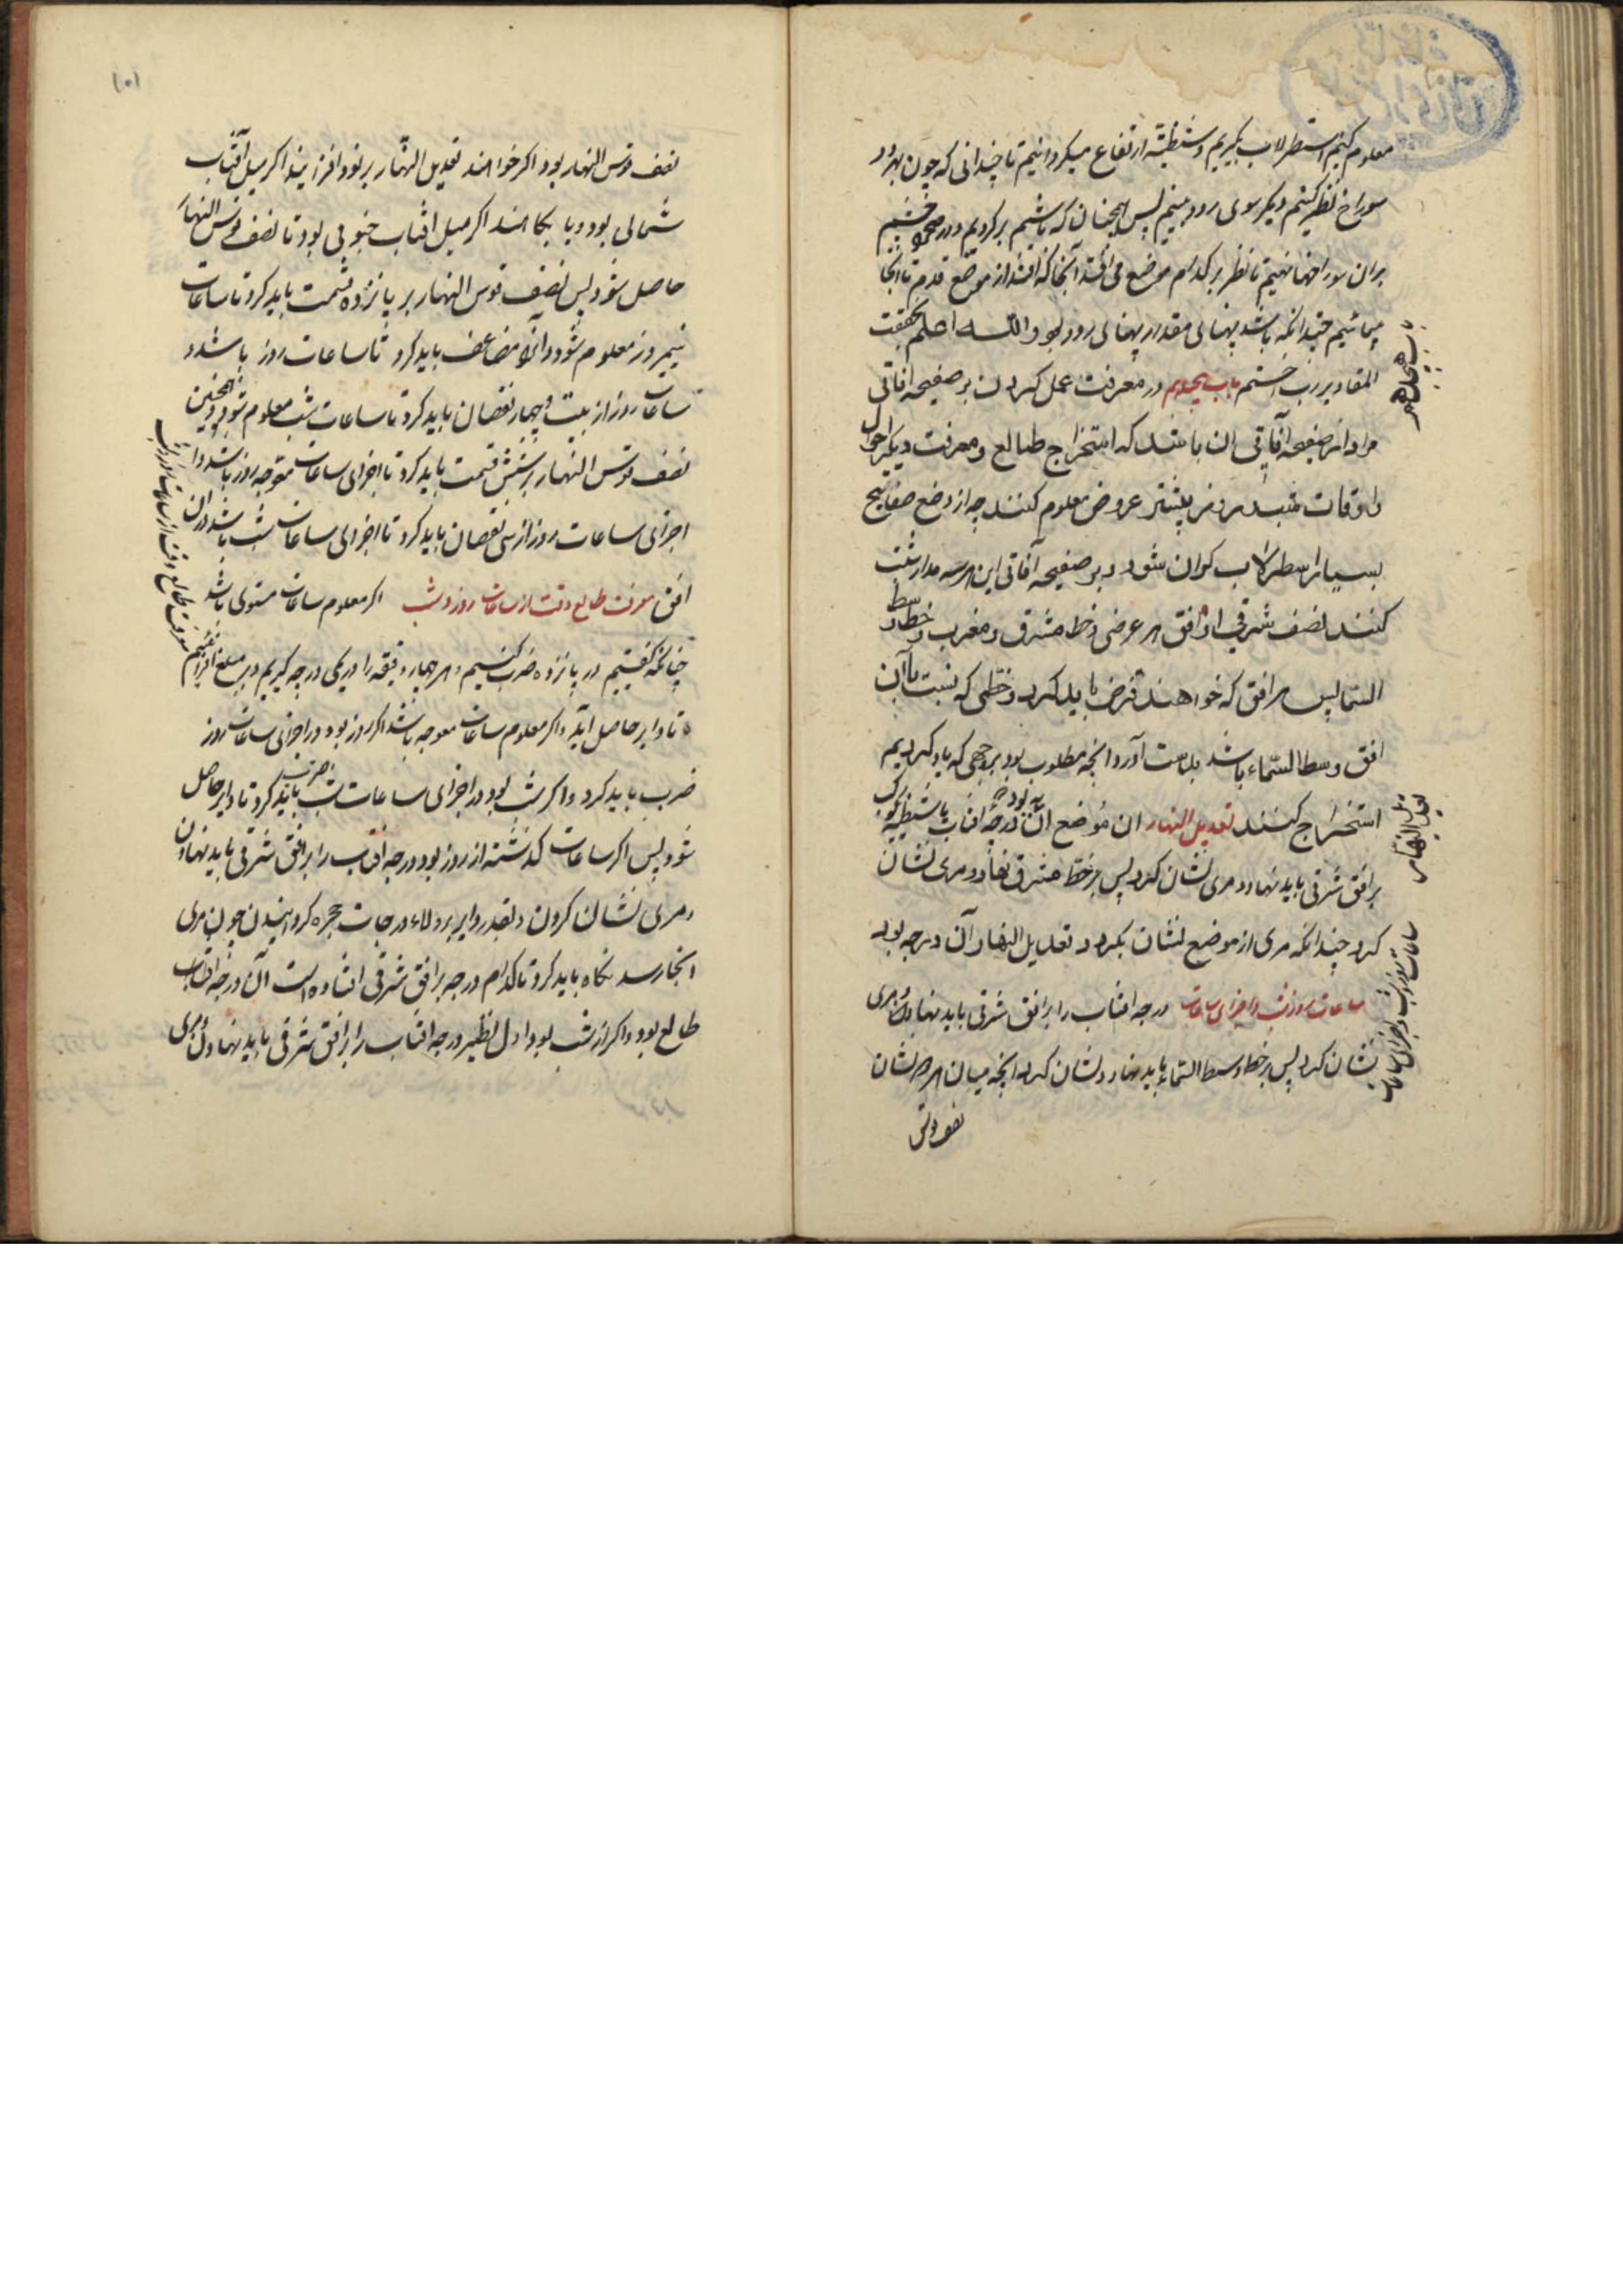 معلوم کنیم اسطرلاب بگیریم و شظیّه ارتفاع میگردانیم تا چندانی که چون بهر دو
سوراخ نظر کنیم دیگر سوی رود بینیم پس همچنان که باشیم برگردیم و در صحرا و چشم
بران سوراخها نهیم تا نظر بر کدام موضع می افتد آنجا که افتد از موضع قدم تا آنجا
بپیمائیم چندانکه باشد پهنای مقدار پهنای رود بود والله اعلم بحقیقت
المقادیر باب هیجدهم در معرفت عمل کردن بر صفیحه آفاقی
مراد از صفیحه آفاقی ان باشد که استخراج طالع و معرفت دیگر احوال
و اوقات شب و روز بیشتر عروض معلوم کنند چه از وضع صفایح
بسیار اسطرلاب کران شود و بر صفیحه آفاقی این هر سه مدار ثبت
کنند نصف شرقی از افق هر عرضی و خط مشرق و مغرب و خط وسط
السما پس هر افق که خواهند فرض باید کرد و خطی که نسبت با آن
افق وسط السّماء باشد بدست آورد و انچه مطلوب بود بر وجهی که یاد کردیم
استخراج کنند تعدیل النهار ان موضع ان درجه افتاب یا شظیه کوکب
بر افق شرقی باید نهاد و مری نشان کرد پس بر خط مشرق نهاد و مری نشان
کرد چندانکه مری از موضع نشان بگردد تعدیل النهار آن درجه بود
ساعات روز و شب و اجزای ساعات درجه افتاب را بر افق شرقی باید نهاد و مری
نشان کرد پس بر خط وسط السّماء باید نهاد و نشان کرد انچه میان هر دو نشان
نصف قوس
باب هیجدهم
تعدیل النهار
ساعات روز و شب و اجزای ساعات
۱۰۱
نصف قوس النهار بود و اگر خواهند تعدیل النهار بر نود افزایند اگر میل آفتاب
شمالی بود و یا بکاهند اگر میل افتاب جنوبی بود تا نصف قوس النهار
حاصل شود پس نصف قوس النهار بر پانزده قسمت باید کرد تا ساعات
نیمروز معلوم شود و آنرا مضاعف باید کرد تا ساعات روز باشد و
ساعات روز از بیست و چهار نقصان باید کرد تا ساعات شب معلوم شود و همچنین
نصف قوس النهار بر شش قسمت باید کرد تا اجزای ساعات معوجه روز باشد و
اجزای ساعات روز از سی نقصان باید کرد تا اجزای ساعات شب باشد دران
افق معرفت طالع وقت از ساعات روز و شب اگر معلوم ساعات مستوی باشد
چنانکه گفتیم در پانزده ضرب کنیم و هر چهار دقیقه را دریکی درجه گیریم و بر مبلغ افزائیم
تا دایر حاصل آید و اگر معلوم ساعات معوجه باشد اگر روز بود در اجزای ساعات روز
ضرب باید کرد و اگر شب بود در اجزای ساعات شب ضرب باید کرد تا دایر حاصل
شود پس اگر ساعات گذشته از روز بود درجه افتاب را بر افق شرقی باید نهادن
و مری نشان کردن و بقدر دایر بر ولاء درجات حجره گردانیدن چون مری
انجا رسد نگاه باید کرد تا کدام درجه بر افق شرقی افتاده است آن درجه افتاب
طالع بود و اگر از شب بود اول نظیر درجه افتاب را بر افق شرقی باید نهاد و مری
معرفت طالع وقت از ساعات روز و شب